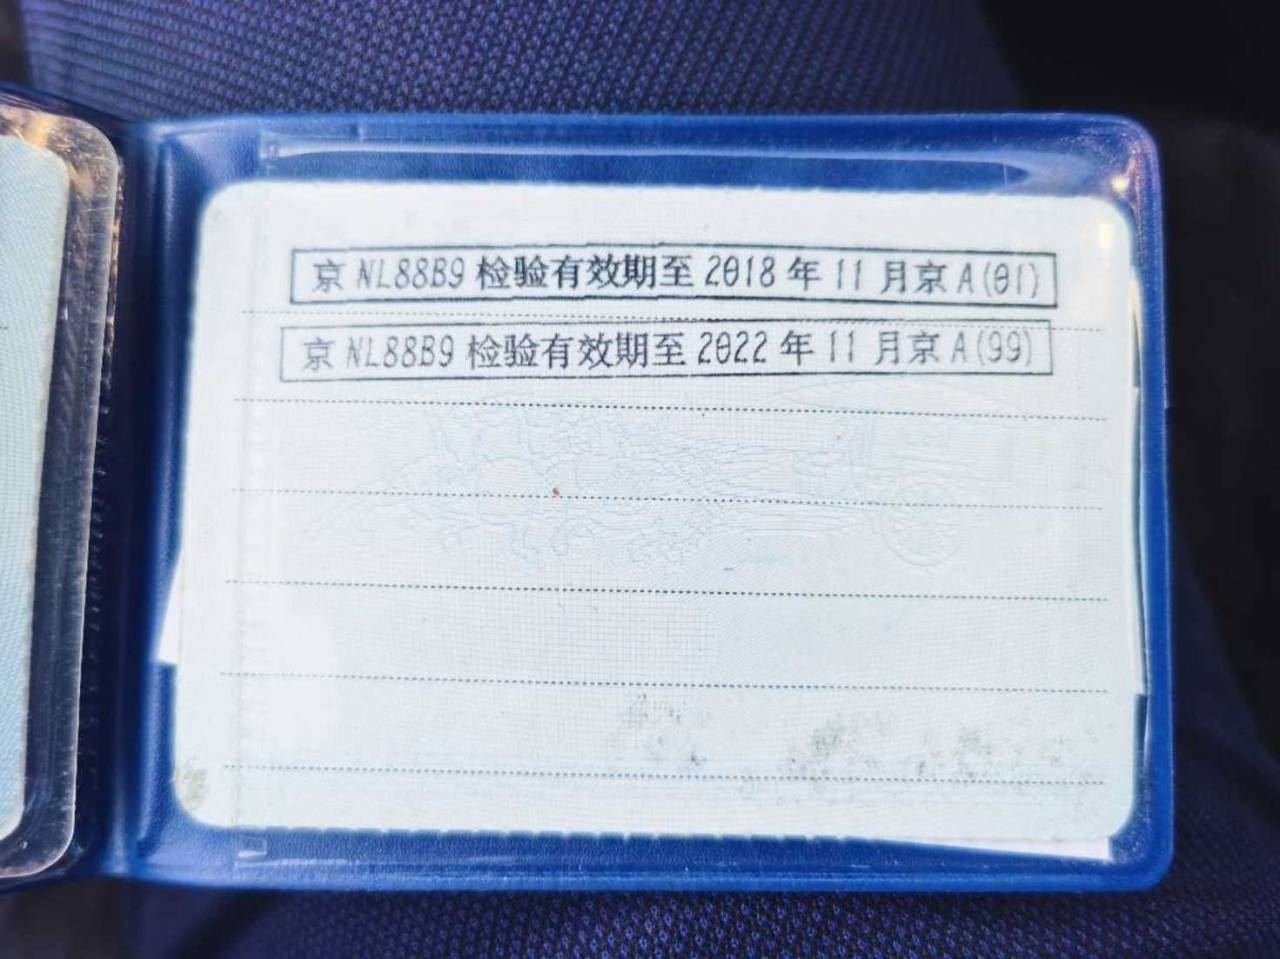 京 NL88B9 检验有效期至 2018 年 11 月京 A(01)
京 NL88B9 检验有效期至 2022 年 11 月京 A(99)